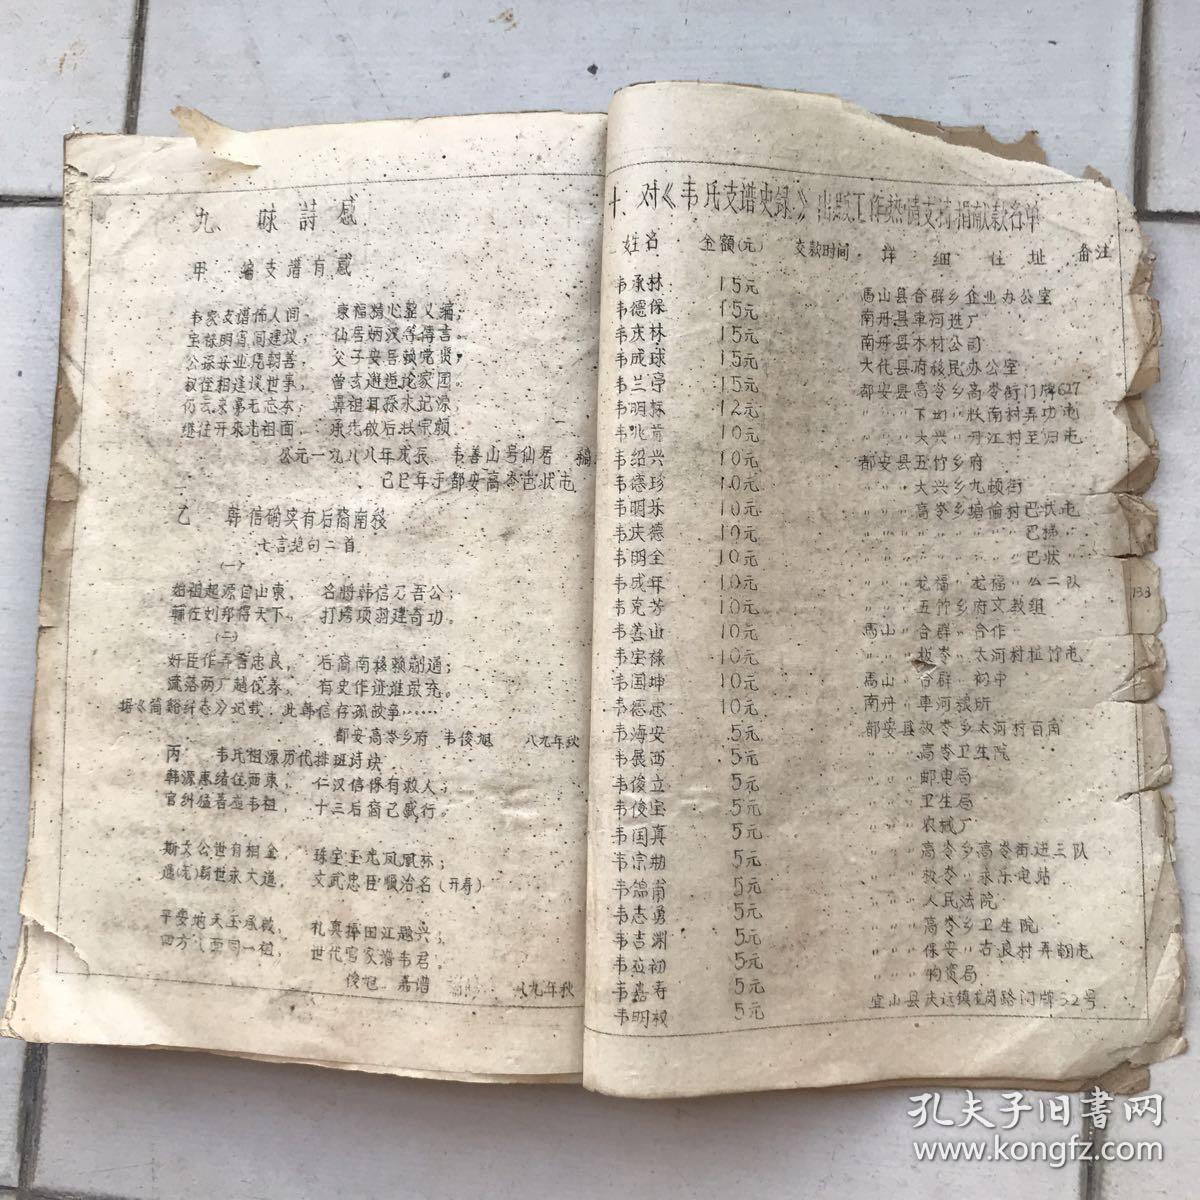 九、咏詩感
甲 编支谱有感
韦家支谱佈人间、 康福精心整义编;
仙居炳汉等傳言。
父子安吾献党贤,
叔侄相逢谈世事, 曾玄邂逅论家园。
仍云来事无忘本, 鼻祖耳孫水记源,
继往开来光祖面, 承先啟后耿宗颜。
公元一九八八年戊辰、韦善山号仙居 稿
己巳年于都安高岑芭状屯
乙 韩信确实有后裔南移
七言绝句二首
(一)
始祖起源自山東, 名將韩信乃吾公;
輔佐刘邦得天下、 打垮项羽建奇功。
(二)
奸臣作弄害忠良, 后裔南移赖蒯通;
流落两广越佗养, 有史作迹谁敢充。
据《简谿纤志》记载:此韩信存孤故事……
都安高岑乡府 韦俊旭 八九年秋
丙 韦氏祖源历代排班诗块
韩源惠绪住西東, 仁汉信保有救人;
十三后裔己感行。
斯文公世有桐金, 珠宝玉光凤凰林;
朝世永大道, 文武忠臣顺治名(开寿)
平安地天玉承啟, 扎真捧田江题兴;
四方八面同一祖, 世代写家谱韦君。
俊旭 嘉谱 八九年秋
十、对《韦氏支谱史録》出版工作热情支持捐献款名单
姓名 金额(元) 交款时间 详细住址 备注
韦承林 15元 馬山县合群乡企业办公室
韦德保 15元 南丹县車河选厂
韦庆林 15元 南丹县木材公司
韦成球 15元 大化县府移民办公室
韦兰亭 15元 都安县高岑乡高岑街门牌627
韦明标 12元 〃〃〃下坳〃板南村弄功屯
韦兆前 10元 〃〃〃大兴〃丹江村至归屯
韦绍兴 10元 都安县五竹乡府
韦德珍 10元 〃〃〃大兴乡九顿街
韦明乐 10元 〃〃〃高岑乡塘偷村巴状屯
韦庆德 10元 〃〃〃〃〃〃巴梯〃
韦明全 10元 〃〃〃〃〃〃巴状〃
韦成年 10元 〃〃〃龙福〃龙福〃公二队
韦克芳 10元 〃〃〃五竹乡府文教组
韦善山 10元 馬山〃合群〃合作
韦宝禄 10元 〃〃板岑〃太河村植竹屯
韦国坤 10元 馬山〃合群〃河中
韦德忠 10元 南丹〃車河粮所
韦海安 5元 都安县板岑乡太河村百南
韦展西 5元 〃〃〃高岑卫生院
韦俊立 5元 〃〃〃邮电局
韦俊宝 5元 〃〃〃卫生局
韦国真 5元 〃〃〃农械厂
韦宗勋 5元 〃〃〃高岑乡高岑街进三队
韦锦甫 5元 〃〃〃板岑〃永乐电站
韦志勇 5元 〃〃〃人民法院
韦吉渊 5元 〃〃〃高岑乡卫生院
韦应初 5元 〃〃〃保安〃古良村弄朝屯
韦嘉寿 5元 〃〃〃物资局
韦明权 5元 宜山县庆远镇龙岗路门牌32号
133
孔夫子旧书网
www.kongfz.com